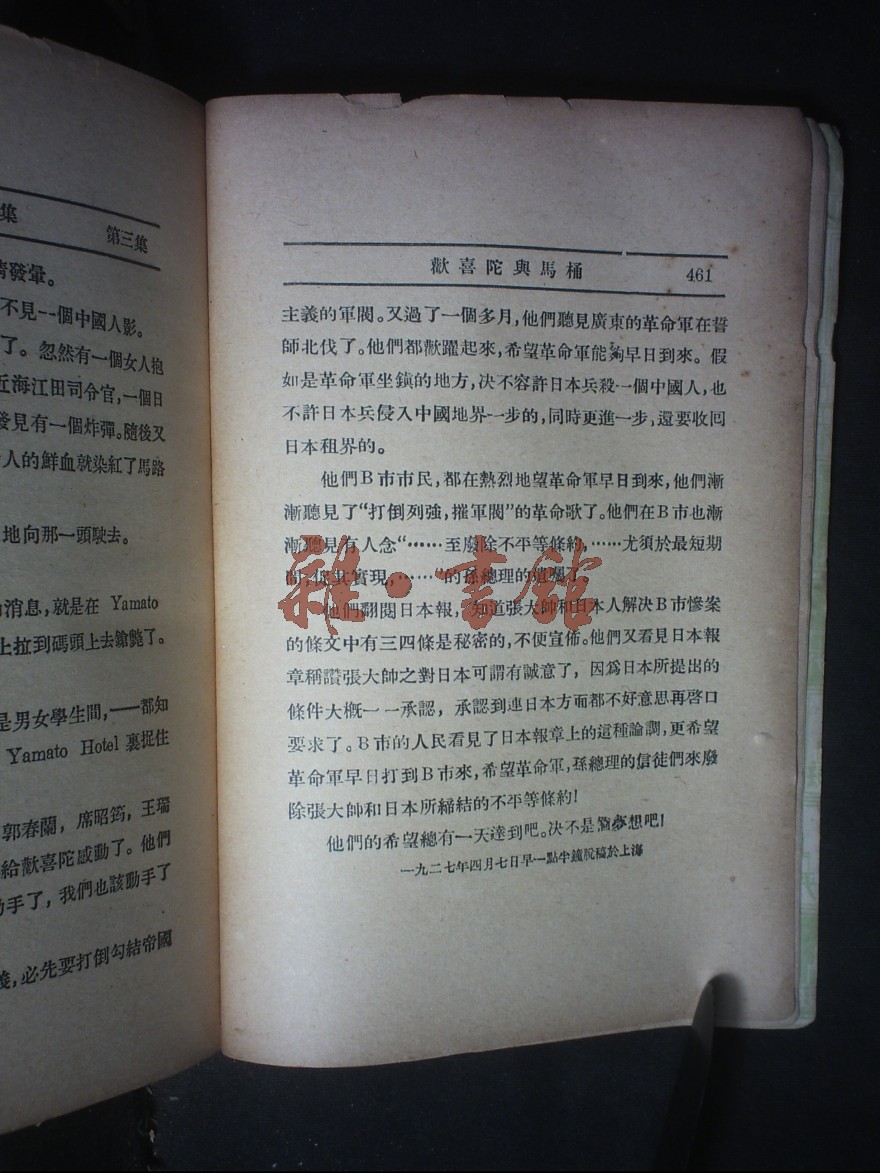 集
第三集
青發暈。
不見一個中國人影。
了。忽然有一個女人抱
近海江田司分官，一個日
發見有一個炸彈。隨後又
人的鮮血就染紅了馬路
地向那一頭駛去。
消息，就是在 Yamato
上拉到碼頭上去鎗斃了。
是男女學生間，——都知
Yamato Hotel 裏捉住
郭春蘭，席昭筠，王瑞
給歡喜陀感動了。他們
動手了，我們也該動手了
義，必先要打倒勾結帝國
歡喜陀與馬桶 461
主義的軍閥。又過了一個多月，他們聽見廣東的革命軍在誓
師北伐了。他們都歡躍起來，希望革命軍能夠早日到來。假
如是革命軍坐鎮的地方，決不容許日本兵殺一個中國人，也
不許日本兵侵入中國地界一步的，同時更進一步，還要收回
日本租界的。
他們B市市民，都在熱烈地望革命軍早日到來，他們漸
漸聽見了“打倒列強，摧軍閥”的革命歌了。他們在B市也漸
漸聽見有人念“……至廢除不平等條約，……尤須於最短期
間，促其實現，……”的孫總理的遺囑了。
他們翻閱日本報，知道張大帥和日本人解決B市慘案
的條文中有三四條是秘密的，不便宣佈。他們又看見日本報
章稱讚張大帥之對日本可謂有誠意了，因爲日本所提出的
條件大概一一承認，承認到連日本方面都不好意思再啓口
要求了。B市的人民看見了日本報章上的這種論調，更希望
革命軍早日打到B市來，希望革命軍，孫總理的信徒們來廢
除張大帥和日本所締結的不平等條約！
他們的希望總有一天達到吧。決不是夢想吧！
一九二七年四月七日早一點半鐘脫稿於上海
雜·書館